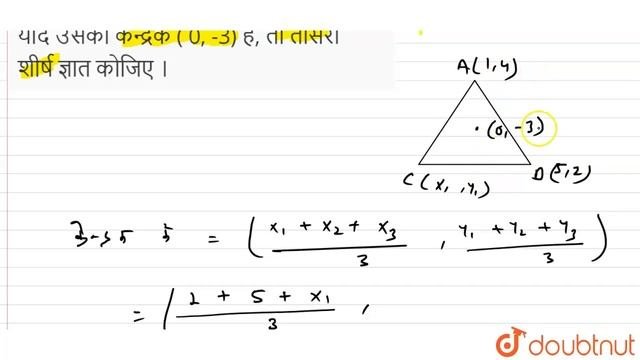 यदि उसका केन्द्रक ( 0, -3) है, तो तीसरा
शीर्ष ज्ञात कीजिए ।
A(1,4)
(0, -3)
C(x₁ ,y₁)
B(5,2)
= ( x₁ + x₂ + x₃ / 3 , y₁ + y₂ + y₃ / 3 )
= ( 2 + 5 + x₁ / 3 ,
doubtnut